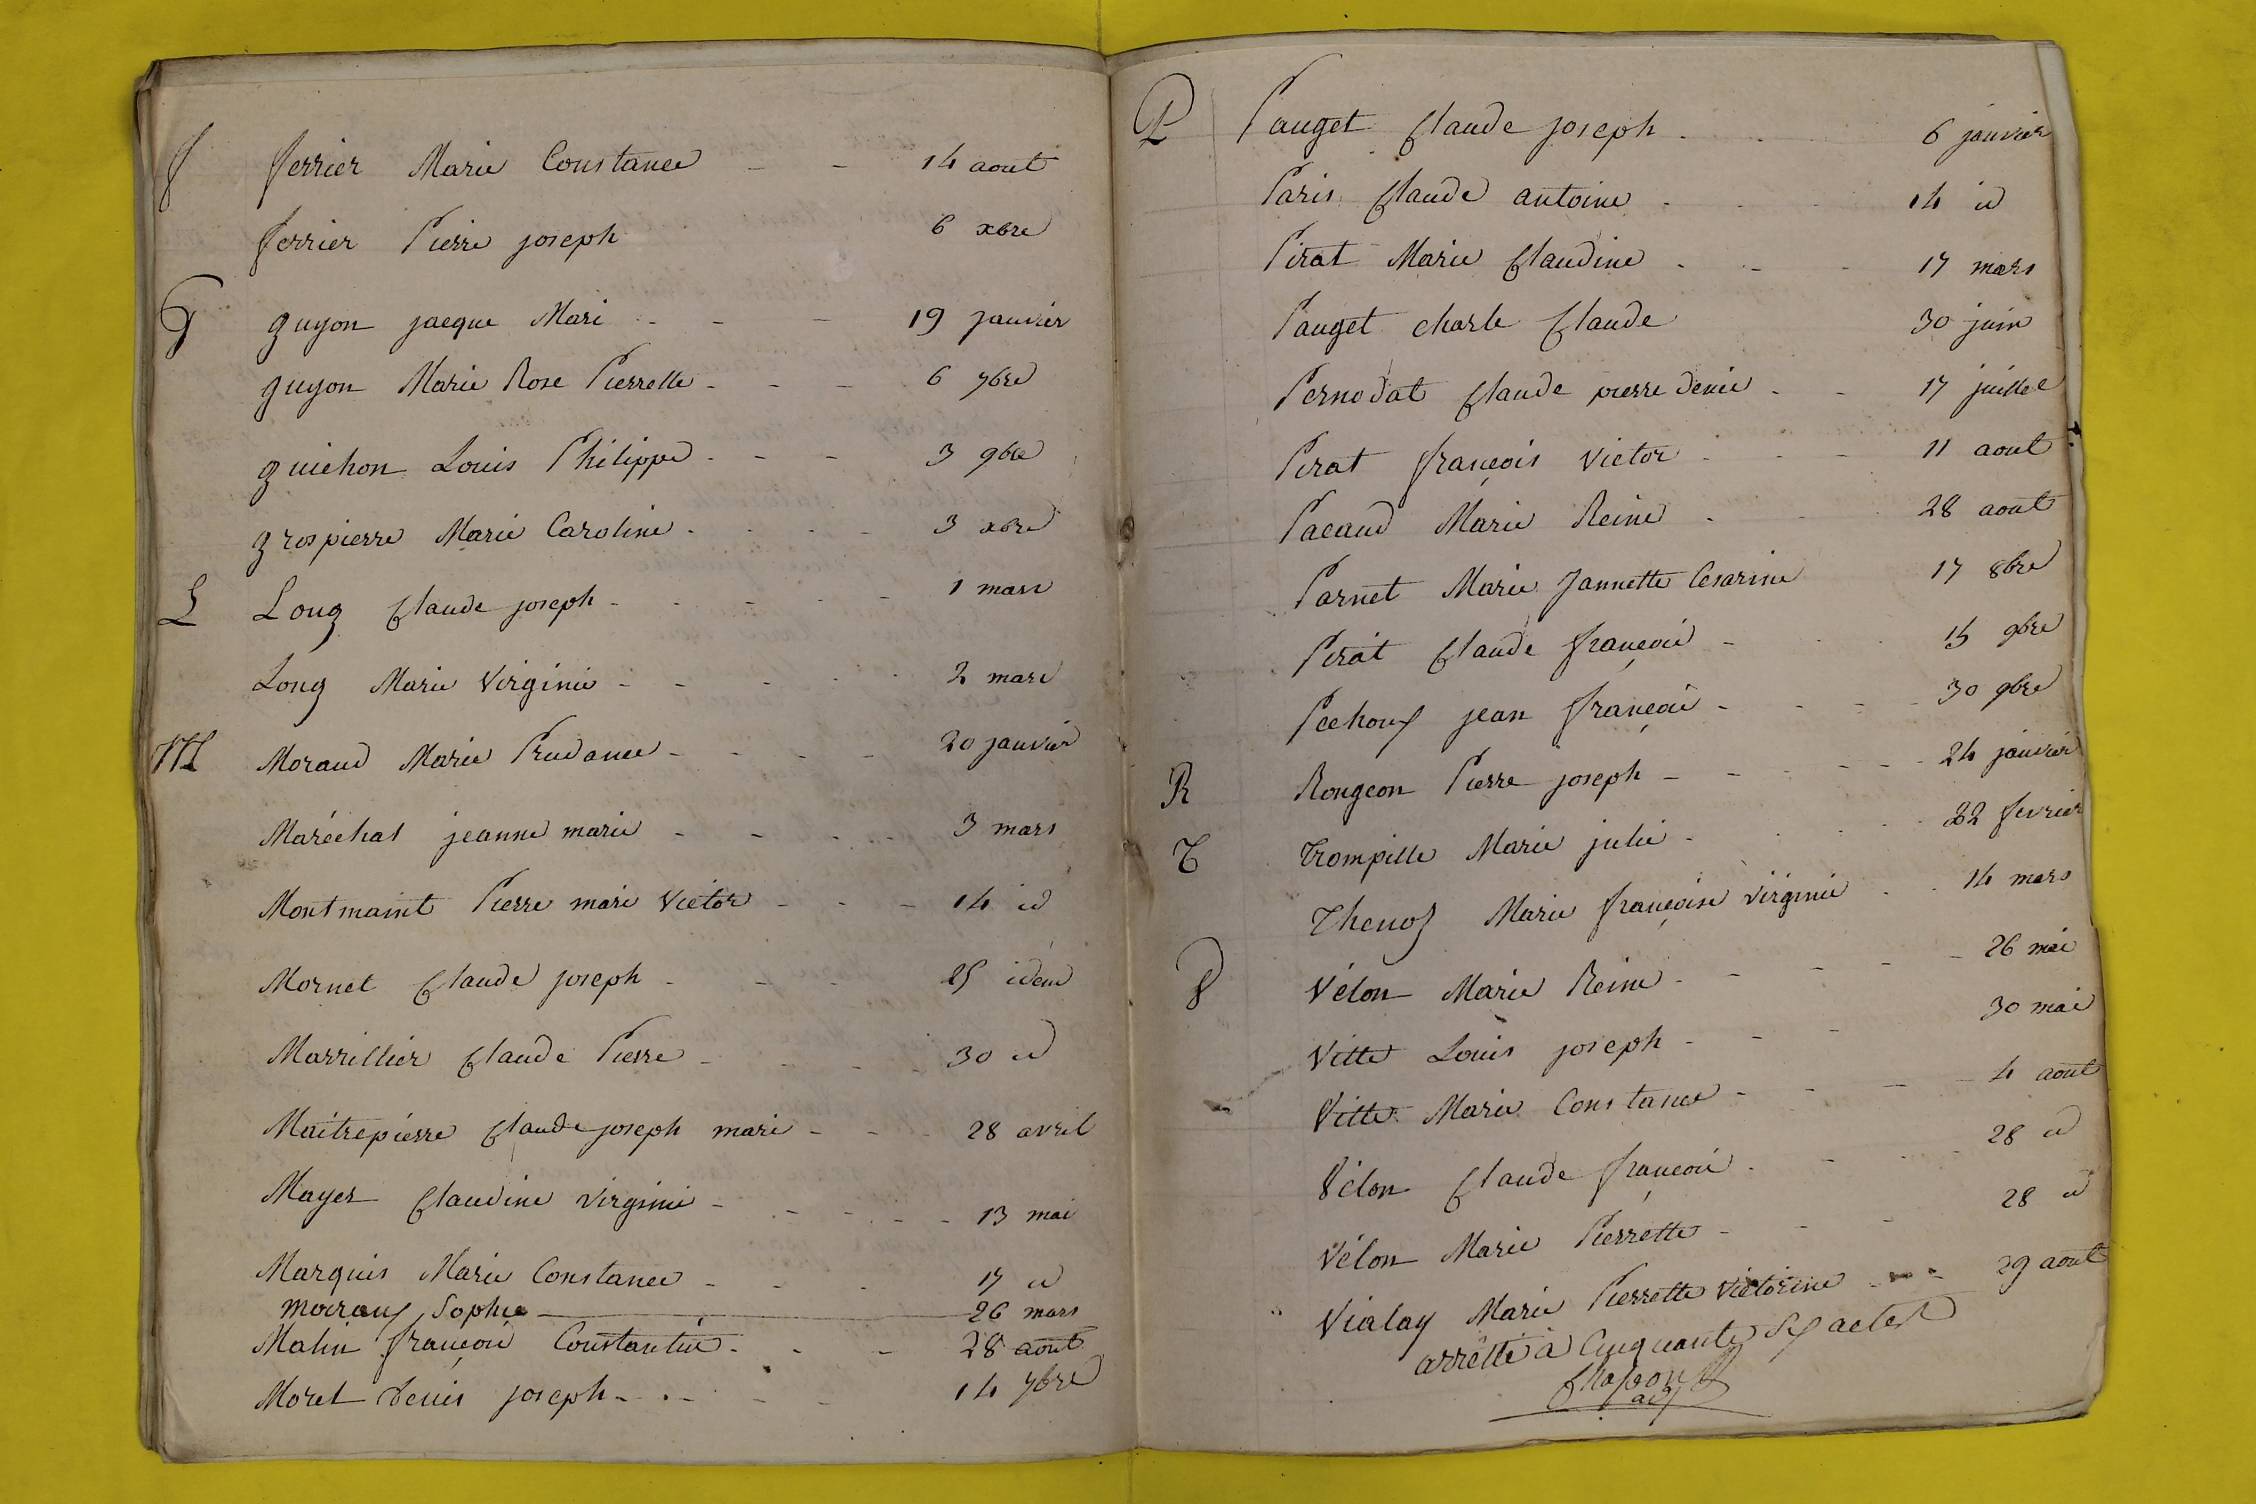 f ferrier Marie Constance - - 14 aout
ferrier Pierre joseph 6 xbre
G guyon jacque Mari - - - 19 janvier
guyon Marie Rose Pierrette - - - 6 7bre
guichon Louis Philippe - - - 3 9bre
grospierre Marie Caroline - - - - 3 xbre
L Long Claude joseph - - - - - 1 mars
Long Marie Virginie - - - - - 2 mars
M Moraud Marie Prudance - - - - 20 janvier
Maréchal jeanne marie - - - - 3 mars
Montmaint Pierre marie Victor - - - 14 id
Mornet Claude joseph - - - 25 idem
Marrillier Claude Pierre - - - - 30 id
Maitrepierre Claude joseph marie - - - 28 avril
Mayer Claudine virginie - - - - - 13 mai
Marquis Marie Constance - - - 17 id
Moiraux Sophie - 26 mars
Malin françois Constantin - - - 28 aout
Morel Denis joseph - - - - 14 7bre
P Pauget Claude joseph - - 6 janvier
Paris Claude antoine - - - 14 id
Pirat Marie Claudine - - - 17 mars
Pauget charle Claude 30 juin
Pernodat Claude pierre denis - - 17 juillet
Pirat françois victor - - - 11 aout
Pacaud Marie Reine - - 28 aout
Parnet Marie Jannette Cesarine 17 8bre
Pirat Claude françois - - - 15 9bre
Pechoux jean françois - - - - 30 9bre
R Rongeon Pierre joseph - - - - - - 24 janvier
T Trompille Marie julie - - - - 22 fevrier
Thenoz Marie françoise virginie - - 14 mars
V Vélon Marie Reine - - - - - 26 mai
Vitte Louis joseph - - - 30 mai
Vitte Marie Constance - - - - 4 aout
Vélon Claude françois - - - - 28 id
Vélon Marie Pierrette - - - 28 id
Vialay Marie Pierrette victorine - - - 29 aout
arrêtté à Cinquante Six actes